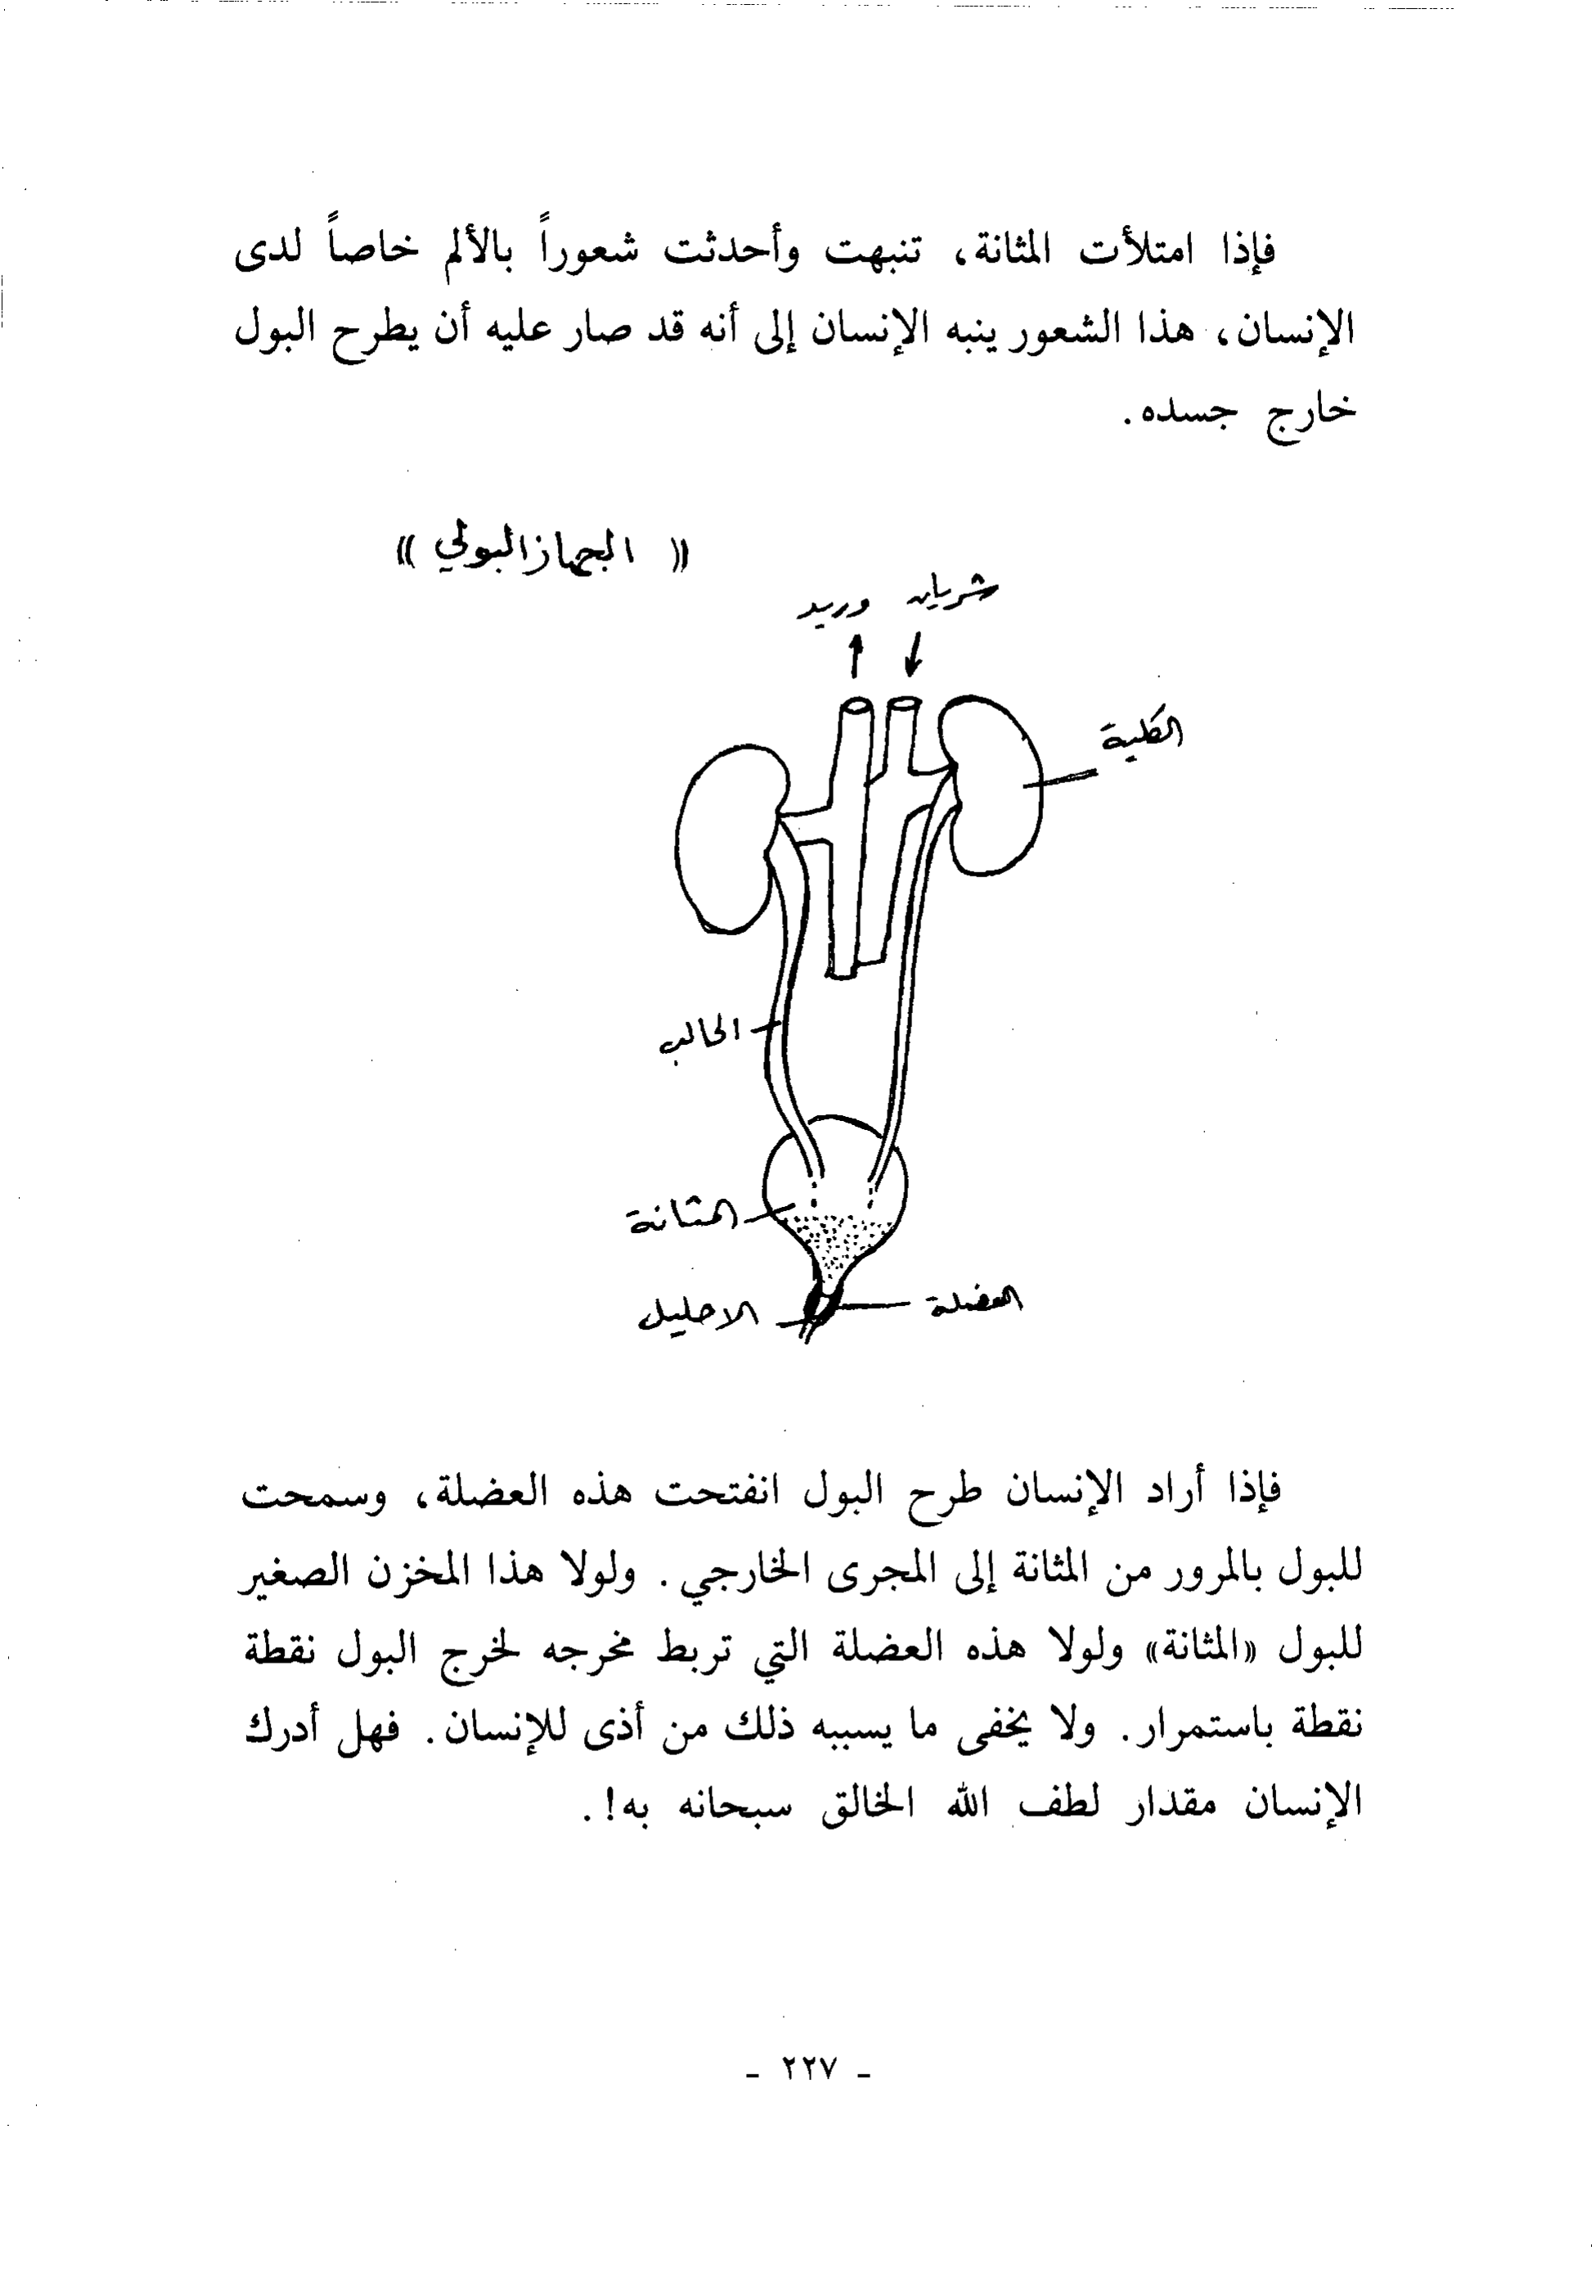 فإذا امتلأت المثانة، تنبهت وأحدثت شعوراً بالألم خاصاً لدى
الإنسان، هذا الشعور ينبه الإنسان إلى أنه قد صار عليه أن يطرح البول
خارج جسده.
« الجهاز البولي »
شريان وريد
الكلية
الحالب
المثانة
العضلة
الاحليل
فإذا أراد الإنسان طرح البول انفتحت هذه العضلة، وسمحت
للبول بالمرور من المثانة إلى المجرى الخارجي. ولولا هذا المخزن الصغير
للبول «المثانة» ولولا هذه العضلة التي تربط مخرجه لخرج البول نقطة
نقطة باستمرار. ولا يخفى ما يسببه ذلك من أذى للإنسان. فهل أدرك
الإنسان مقدار لطف الله الخالق سبحانه به!.
- ٢٢٧ -